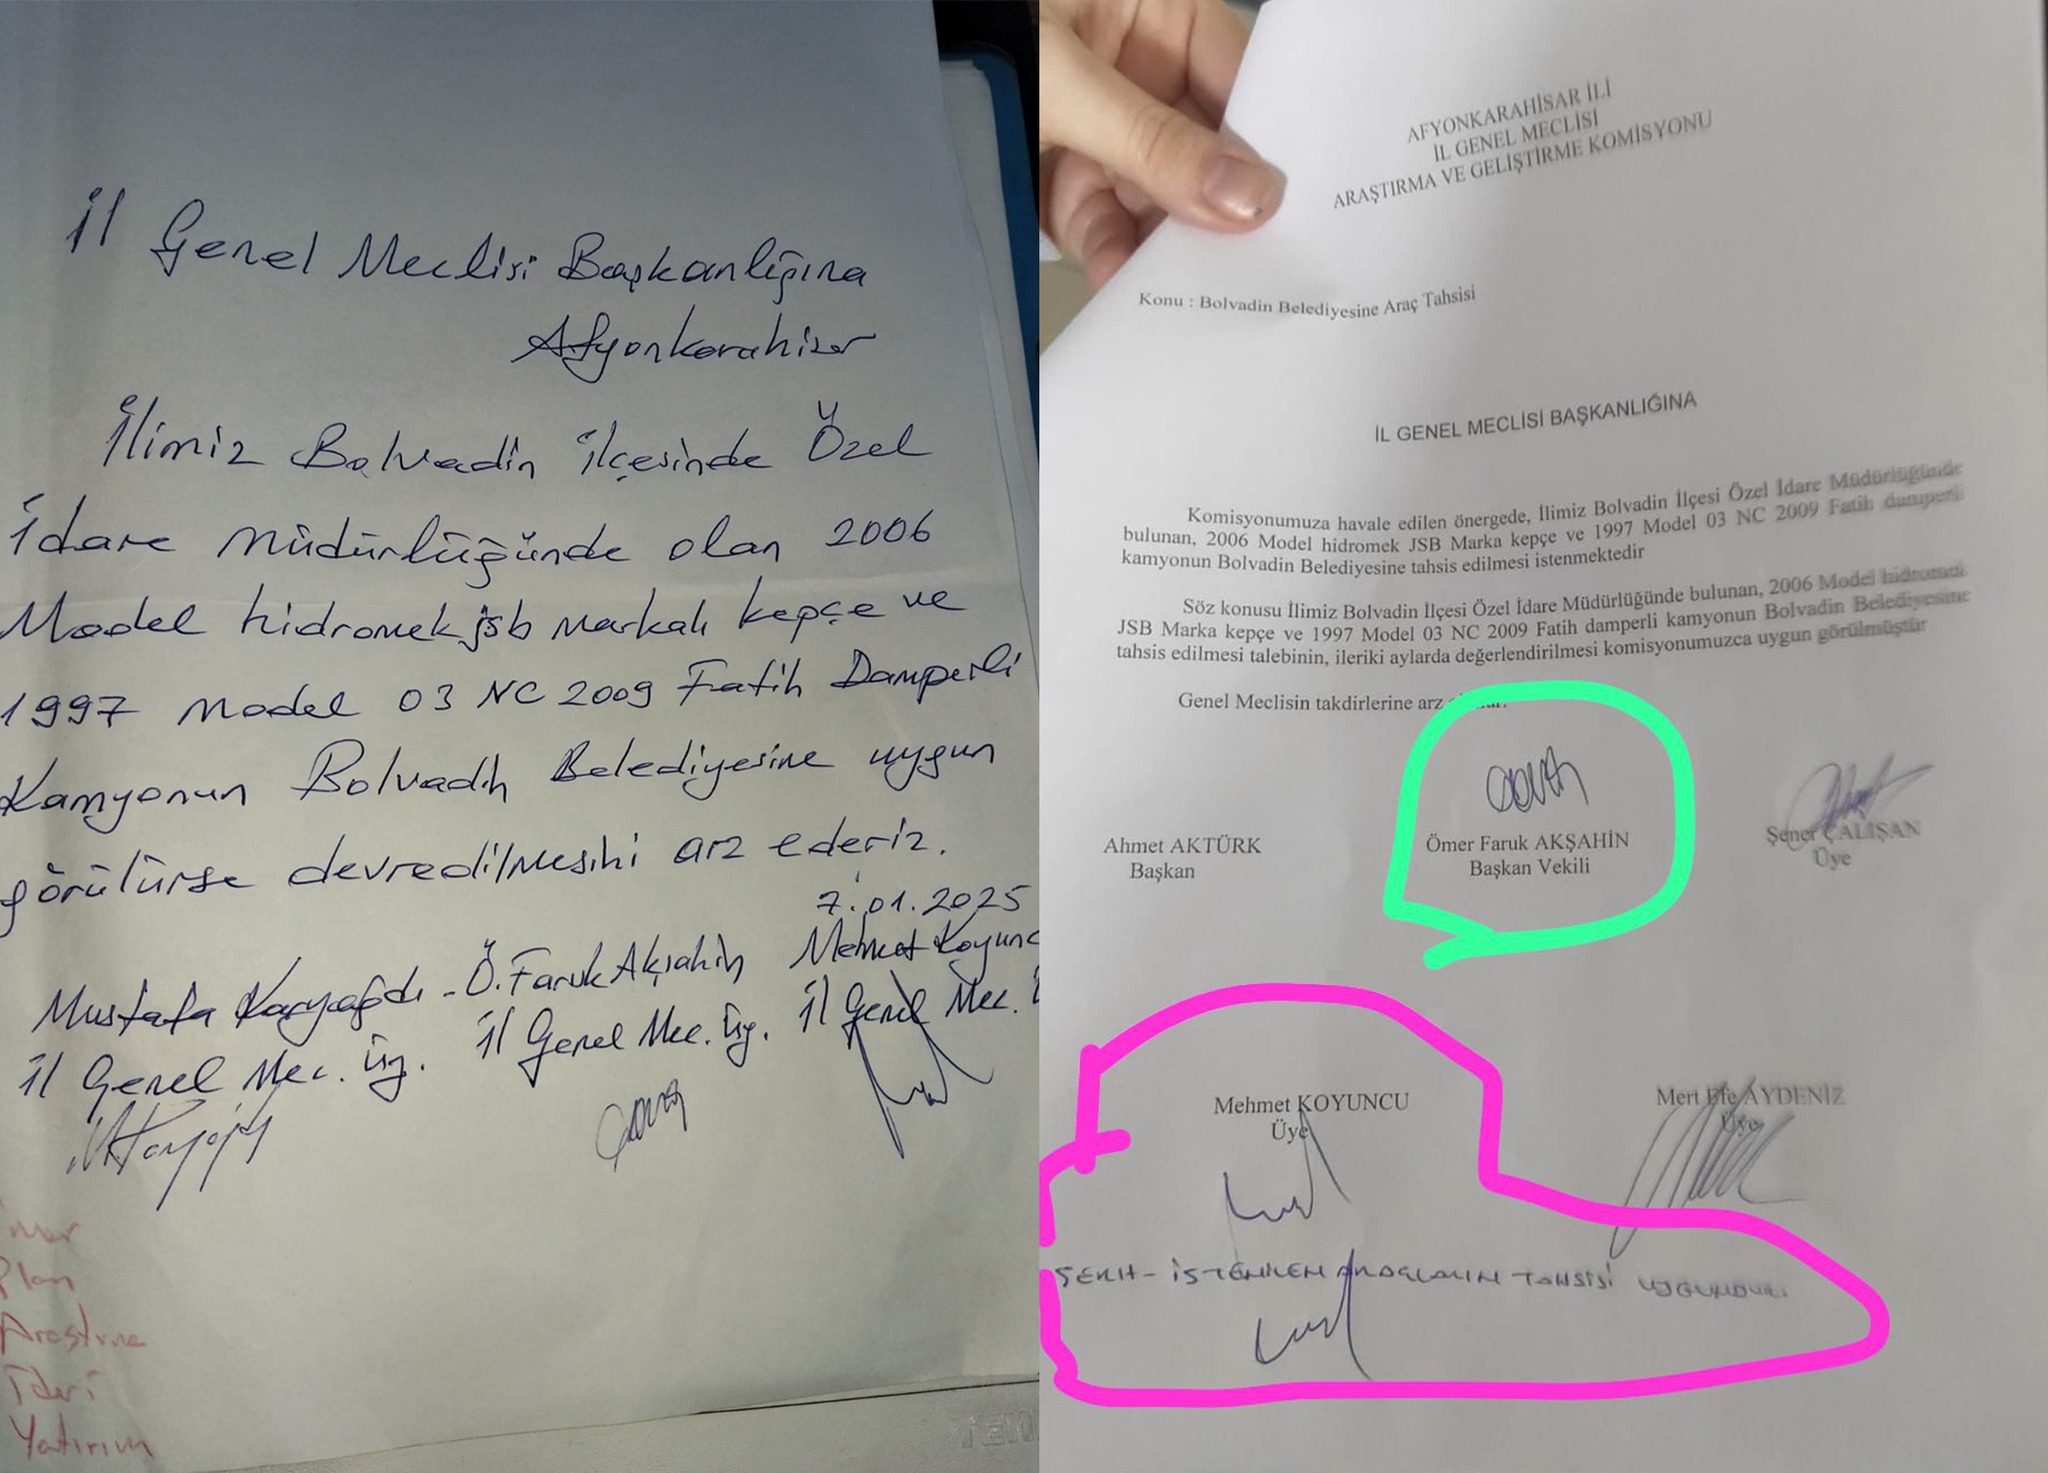 İl Genel Meclisi Başkanlığına
Afyonkarahisar
İlimiz Bolvadin ilçesinde Özel
İdare Müdürlüğünde olan 2006
Model hidromek jsb markalı kepçe ve
1997 Model 03 NC 2009 Fatih Damperli
Kamyonun Bolvadin Belediyesine uygun
görülürse devredilmesini arz ederiz.
7.01.2025
Mustafa Karyağdı - Ö. Faruk Akşahin Mehmet Koyunc
İl Genel Mec. Üy. İl Genel Mec. Üy. İl Genel Mec.
İmar
Plan
Araştırma
İdari
Yatırım
AFYONKARAHİSAR İLİ
İL GENEL MECLİSİ
ARAŞTIRMA VE GELİŞTİRME KOMİSYONU
Konu : Bolvadin Belediyesine Araç Tahsisi
İL GENEL MECLİSİ BAŞKANLIĞINA
Komisyonumuza havale edilen önergede, İlimiz Bolvadin İlçesi Özel İdare Müdürlüğünde
bulunan, 2006 Model hidromek JSB Marka kepçe ve 1997 Model 03 NC 2009 Fatih damperli
kamyonun Bolvadin Belediyesine tahsis edilmesi istenmektedir
Söz konusu İlimiz Bolvadin İlçesi Özel İdare Müdürlüğünde bulunan, 2006 Model hidromek
JSB Marka kepçe ve 1997 Model 03 NC 2009 Fatih damperli kamyonun Bolvadin Belediyesine
tahsis edilmesi talebinin, ileriki aylarda değerlendirilmesi komisyonumuzca uygun görülmüştür
Genel Meclisin takdirlerine arz
Ahmet AKTÜRK Ömer Faruk AKŞAHİN Şener ÇALIŞAN
Başkan Başkan Vekili Üye
Mehmet KOYUNCU Mert Efe AYDENİZ
Üye Üye
ŞERH - İSTENİLEN ARAÇLARIN TAHSİSİ UYGUNDUR.